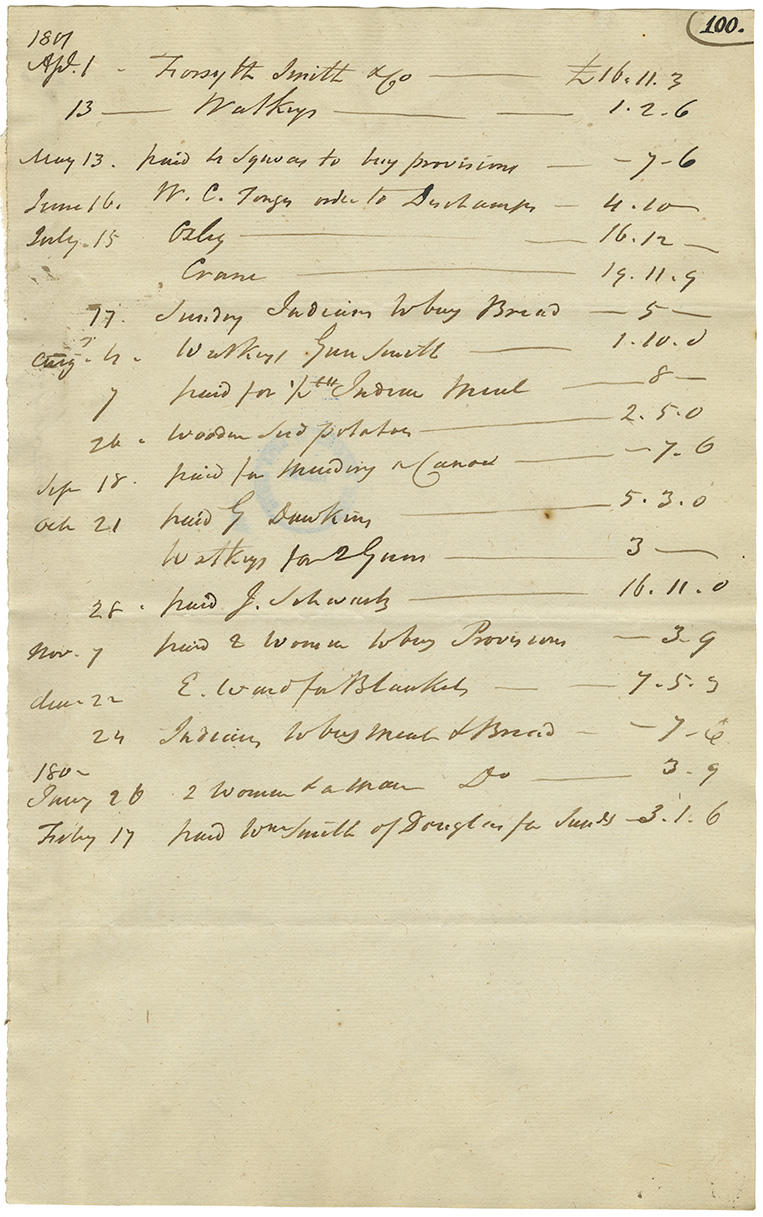 100.
1801
Apl. 1 - Forsyth Smith & Co — £16.11.3
13 — Watkeys — 1.2.6
May 13. paid 4 Squas to buy provisions — - 7-6
June 16. W. C. order to Deschamps — 4.10 —
July 15 Oxley — 16.12 —
Crane — 19.11.9
17. Sunday Indians to buy Bread — 5 —
Augt. 4. Watkeys Gun Smith — 1.10.0
7 paid for Indian Meal — 8 —
26. Wooden Seed potatoes — 2.5.0
Sep 18. paid for mending a Canoe — - 7.6
Oct 21 paid G Dawkins — 5.3.0
Watkeys for 2 Guns — 3 —
28. paid J. Schwartz — 16.11.0
Nov. 7 paid 2 Women to buy Provisions — 3-9
22 E. Ward for Blankets — 7.5.3
24 Indians to buy Meal & Bread - - 7-6
180
Jany 26 2 Women & a Man Do — 3-9
Feby 17 paid Wm Smith of Douglas for - 3.1.6